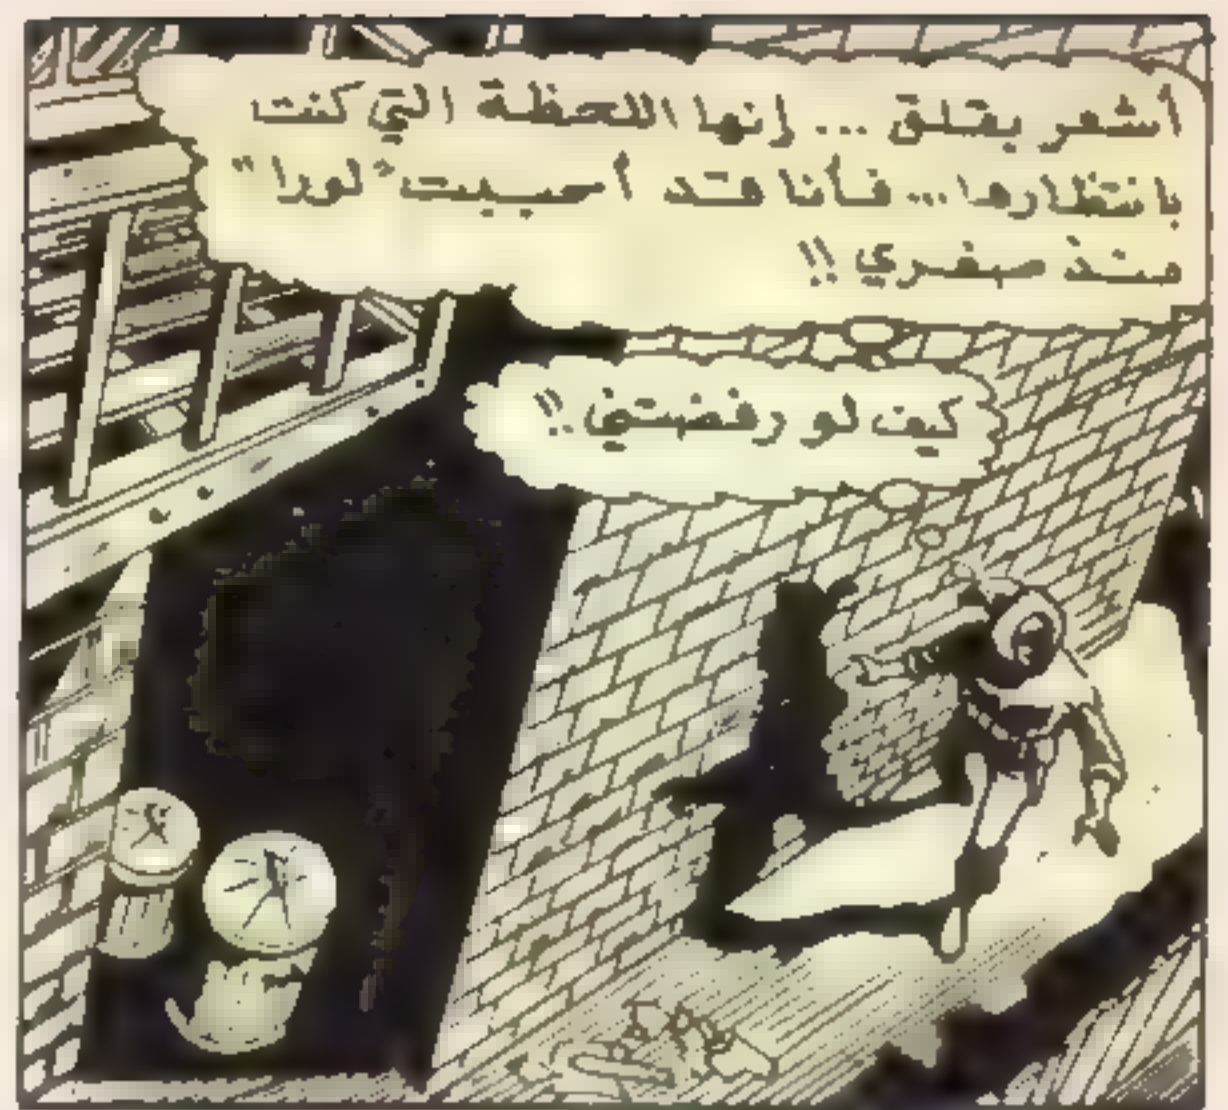 أشعر بقلق ... إنها اللحظة التي كنت
بانتظارها ... فأنا قد أحببت "لورا"
منذ صغري !!
كيف لو رفضتني !!